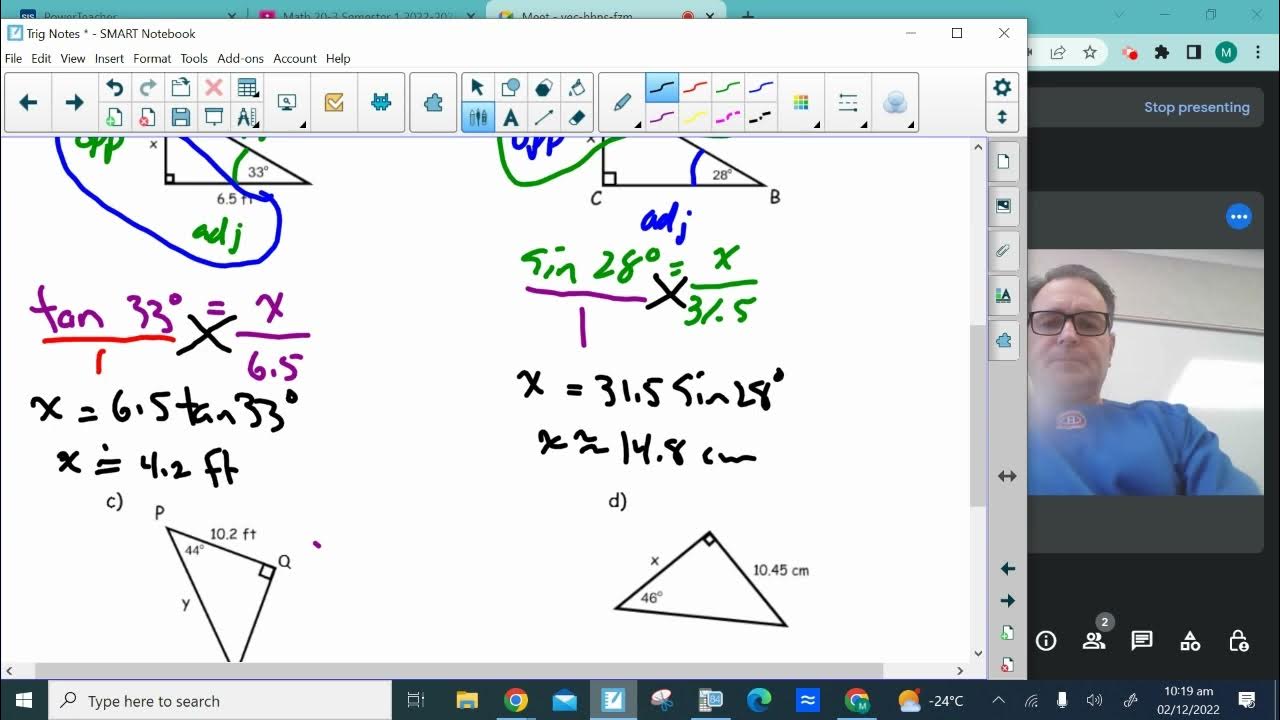 PowerTeacher
Math 20-3 Semester 1 2022-202
Meet - vec-hhns-fzm
Trig Notes * - SMART Notebook
File Edit View Insert Format Tools Add-ons Account Help
M
Stop presenting
opp
x
33°
6.5 ft
adj
opp
x
28°
C
B
adj
tan 33° = x
1
6.5
x = 6.5 tan 33°
x ≐ 4.2 ft
sin 28° = x
1
31.5
x = 31.5 sin 28°
x ≈ 14.8 cm
c)
P
10.2 ft
44°
Q
y
d)
x
10.45 cm
46°
2
Type here to search
-24°C
10:19 am
02/12/2022